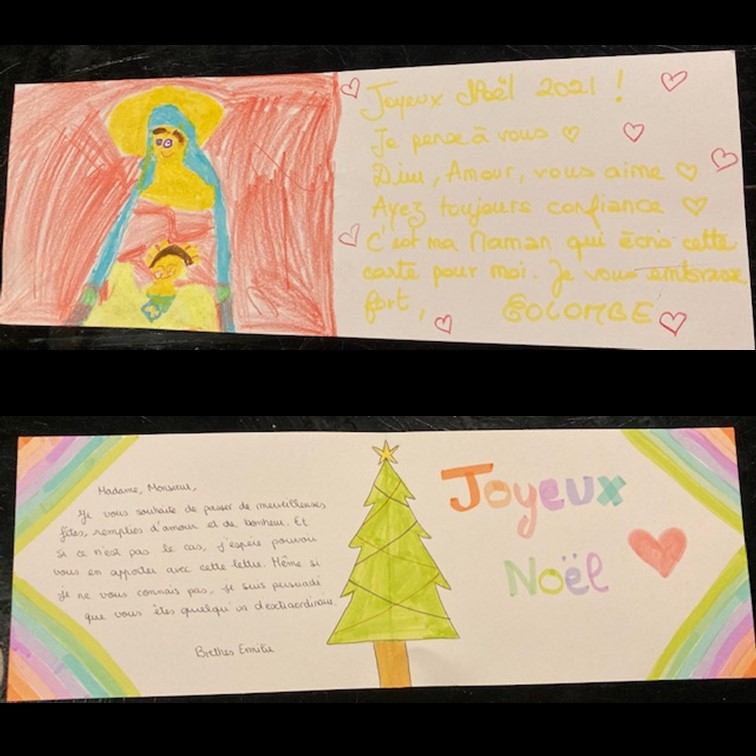 Joyeux Noël 2021 !
Je pense à vous
Dieu, Amour, vous aime
Ayez toujours confiance
C'est ma Maman qui écris cette
carte pour moi. Je vous embrasse
fort,
COLOMBE
Madame, Monsieur,
Je vous souhaite de passer de merveilleuses
fêtes, remplies d'amour et de bonheur. Et
si ce n'est pas le cas, j'espère pouvoir
vous en apporter avec cette lettre. Même si
je ne vous connais pas, je suis persuadé
que vous êtes quelqu'un d'extraordinaire.
Brethes Emilie
Joyeux
Noël